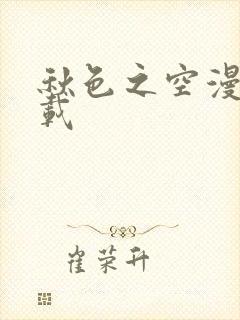 秋色之空漫
载
崔荣升